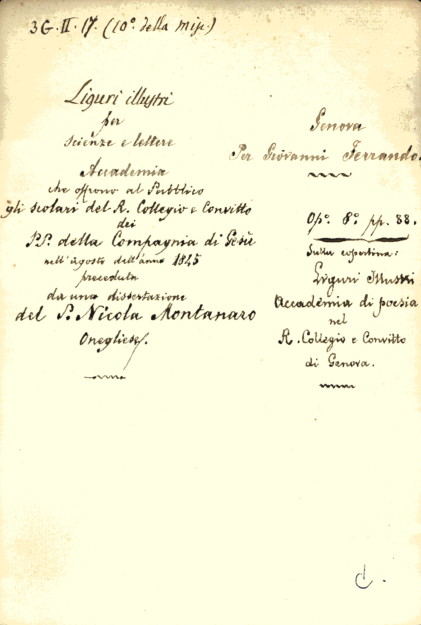 3G. II. 17. (10º. della misc.)
Liguri illustri
per
scienze e lettere
Accademia
che offrono al Pubblico
gli scolari del R. Collegio e Convitto
dei
PP. della Compagnia di Gesù
nell'agosto dell'anno 1845
preceduta
da una dissertazione
del P. Nicola Montanaro
Onegliese.
Genova
Per Giovanni Ferrando.
Op. 8º. pp. 88.
Sulla copertina:
Liguri Illustri
Accademia di poesia
nel
R. Collegio e Convitto
di Genova.